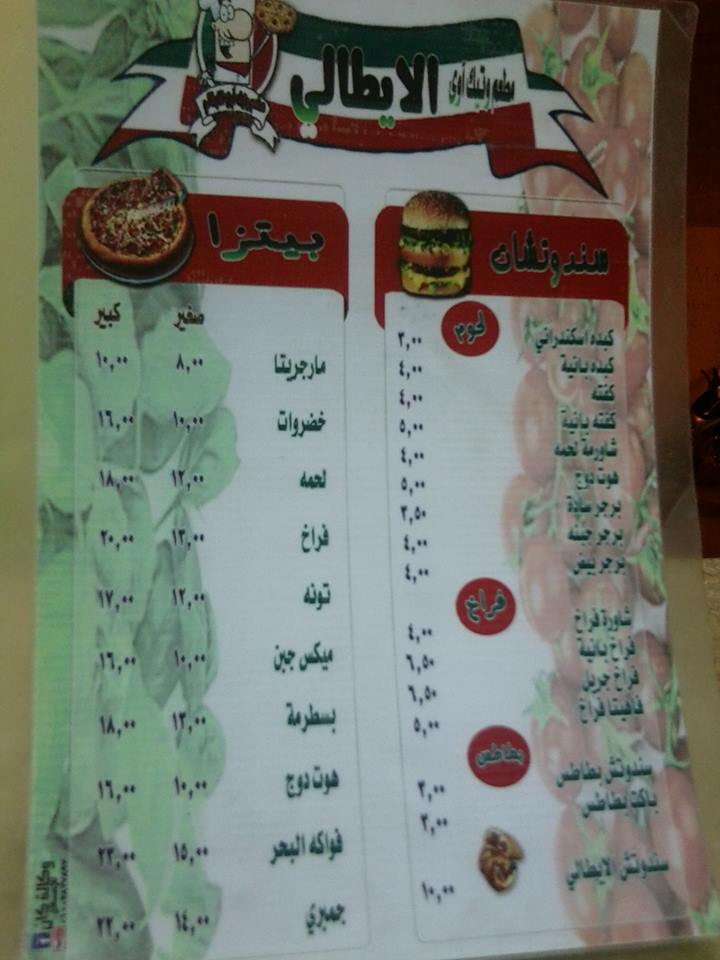 مطعم وتيك اوى الايطالي
سندوتشات
لحوم
كبده اسكندراني ٣,٠٠
كبده بانية ٤,٠٠
كفته ٤,٠٠
كفته بانية ٥,٠٠
شاورمة لحمه ٤,٠٠
هوت دوج ٥,٠٠
برجر سادة ٣,٥٠
برجر جبنه ٤,٠٠
برجر بيض ٤,٠٠
فراخ
شاورة فراخ ٤,٠٠
فراخ بانية ٦,٥٠
فراخ جريل ٦,٥٠
فاهيتا فراخ ٥,٠٠
بطاطس
سندوتش بطاطس ٢,٠٠
باكت بطاطس ٣,٠٠
سندوتش الايطالي ١٠,٠٠
بيتزا
صغير كبير
مارجريتا ٨,٠٠ ١٠,٠٠
خضروات ١٠,٠٠ ١٦,٠٠
لحمه ١٢,٠٠ ١٨,٠٠
فراخ ١٣,٠٠ ٢٠,٠٠
تونه ١٢,٠٠ ١٧,٠٠
ميكس جبن ١٠,٠٠ ١٦,٠٠
بسطرمة ١٣,٠٠ ١٨,٠٠
هوت دوج ١٠,٠٠ ١٦,٠٠
فواكه البحر ١٥,٠٠ ٢٣,٠٠
جمبري ١٤,٠٠ ٢٢,٠٠
وكالة كان